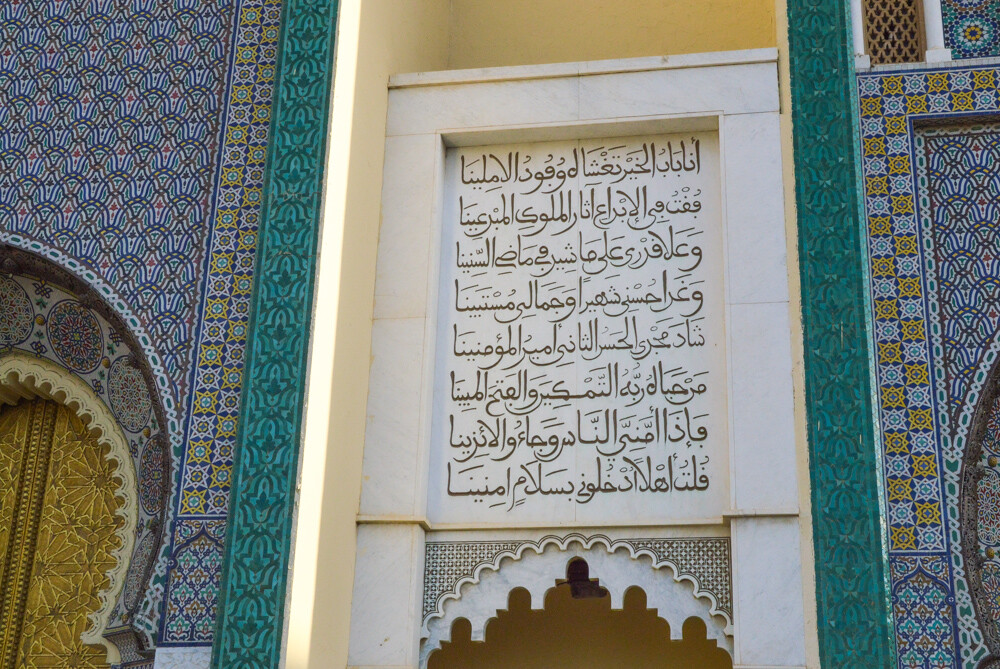 أنا باب الخير تغشاه وفود الاملينا
فقت في الابداع آثار الملوك المبدعينا
وعلا قدري على ما شيد في ماضي السنينا
وغدا حسني شهيرا وجمالي مستبينا
شاد مجدي الحسن الثاني أمير المؤمنينا
مرحباه ربه التمكين والفتح المبينا
فإذا أمني الناس وجاءوا لائذينا
قلت أهلا ادخلوني بسلام امنينا